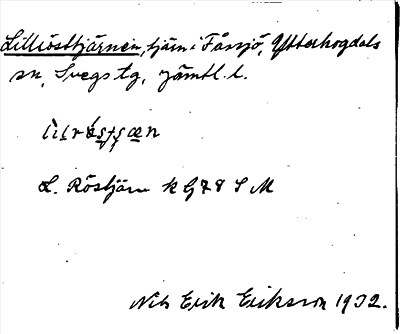 Lillröstjärnen, tjärn i Fåssjö, Ytterhogdals
sn, Svegs tg, Jämtl. l.
L. Röstjärn k G 78 S M
Nils Erik Eriksson 1932.